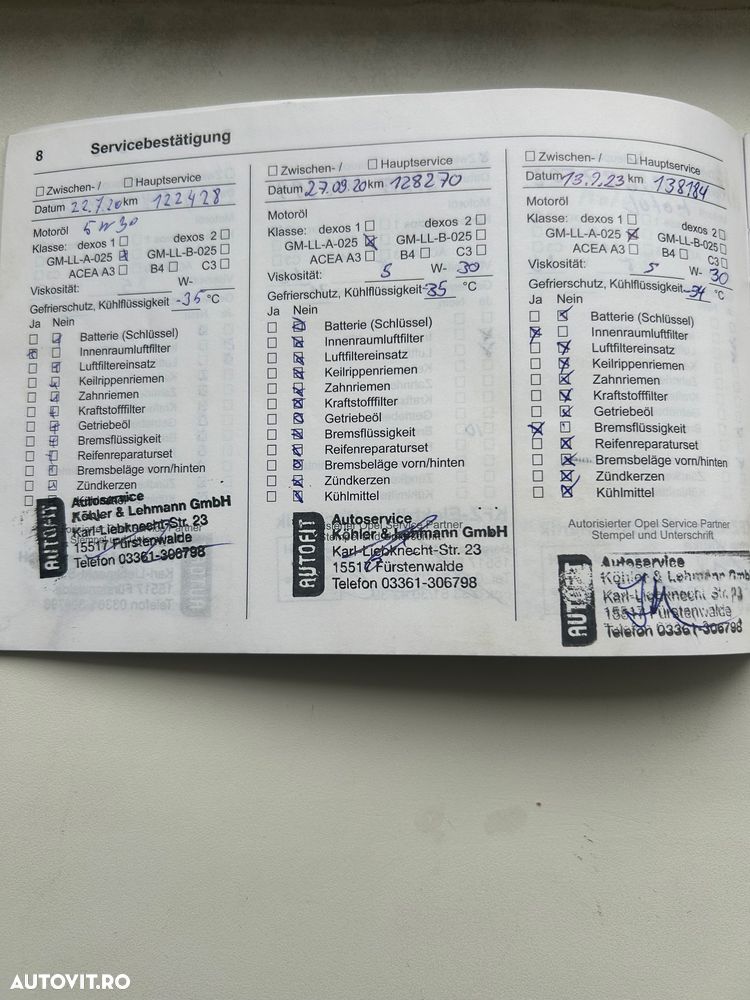 8 Servicebestätigung
Zwischen- / Hauptservice
Datum 22.7.20 km 122428
Motoröl 5W30
Klasse: dexos 1 dexos 2
GM-LL-A-025 GM-LL-B-025
ACEA A3 B4 C3
Viskosität: W-
Gefrierschutz, Kühlflüssigkeit -35 °C
Ja Nein
Batterie (Schlüssel)
Innenraumluftfilter
Luftfiltereinsatz
Keilrippenriemen
Zahnriemen
Kraftstofffilter
Getriebeöl
Bremsflüssigkeit
Reifenreparaturset
Bremsbeläge vorn/hinten
Zündkerzen
AUTOFIT
Autoservice
Köhler & Lehmann GmbH
Karl-Liebknecht-Str. 23
15517 Fürstenwalde
Telefon 03361-306798
Zwischen- / Hauptservice
Datum 27.09.20 km 128270
Motoröl
Klasse: dexos 1 dexos 2
GM-LL-A-025 GM-LL-B-025
ACEA A3 B4 C3
Viskosität: 5 W- 30
Gefrierschutz, Kühlflüssigkeit -35 °C
Ja Nein
Batterie (Schlüssel)
Innenraumluftfilter
Luftfiltereinsatz
Keilrippenriemen
Zahnriemen
Kraftstofffilter
Getriebeöl
Bremsflüssigkeit
Reifenreparaturset
Bremsbeläge vorn/hinten
Zündkerzen
Kühlmittel
AUTOFIT
Autoservice
Köhler & Lehmann GmbH
Karl-Liebknecht-Str. 23
15517 Fürstenwalde
Telefon 03361-306798
Zwischen- / Hauptservice
Datum 13.9.23 km 138184
Motoröl
Klasse: dexos 1 dexos 2
GM-LL-A-025 GM-LL-B-025
ACEA A3 B4 C3
Viskosität: 5 W- 30
Gefrierschutz, Kühlflüssigkeit -34 °C
Ja Nein
Batterie (Schlüssel)
Innenraumluftfilter
Luftfiltereinsatz
Keilrippenriemen
Zahnriemen
Kraftstofffilter
Getriebeöl
Bremsflüssigkeit
Reifenreparaturset
Bremsbeläge vorn/hinten
Zündkerzen
Kühlmittel
Autorisierter Opel Service Partner
Stempel und Unterschrift
Autoservice
Köhler & Lehmann GmbH
Karl-Liebknecht Str. 23
15517 Fürstenwalde
Telefon 03361-306798
AUTOVIT.RO